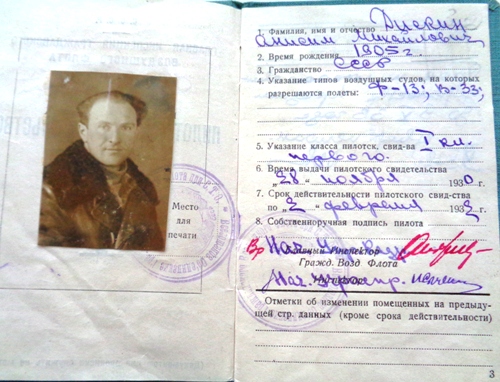 Место
для
печати
1. Фамилия, имя и отчество Дискин
Анисим Михайлович,
2. Время рождения 1905 г.
3. Гражданство СССР
4. Указание типов воздушных судов, на которых
разрешаются полеты: Ф-13; К-33;
5. Указание класса пилотск. свид-ва I кл.
первого.
6. Время выдачи пилотского свидетельства
„28" ноября 1930 г.
7. Срок действительности пилотского свид-ства
по „2" февраля 193 г.
8. Собственноручная подпись пилота
Вр Нач.
Главный Инспектор
Гражд. Возд Флота
Нач.
Отметки об изменении помещенных на предыду-
щей стр. данных (кроме срока действительности)
3